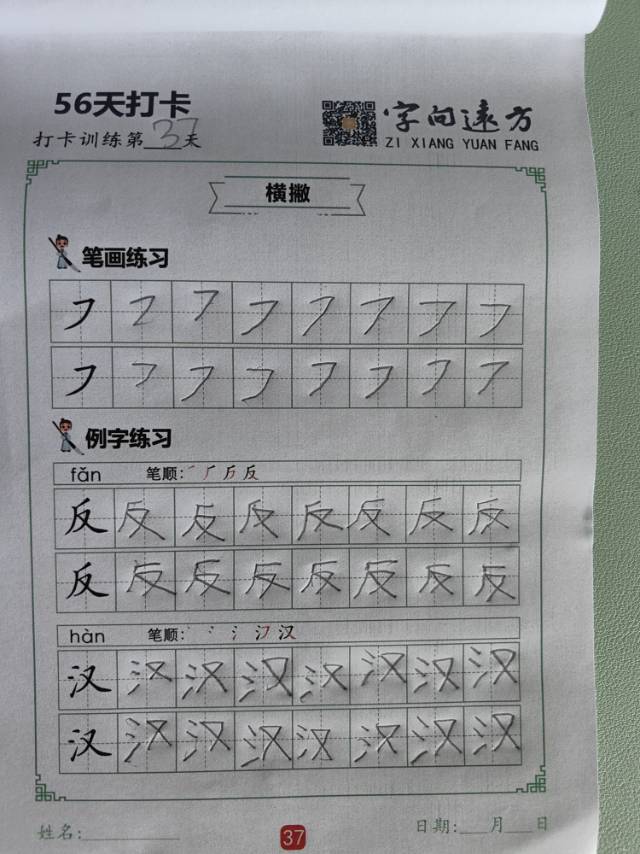 56天打卡
打卡训练第37天
字向远方
ZI XIANG YUAN FANG
横撇
笔画练习
㇇ ㇇ ㇇ ㇇ ㇇ ㇇ ㇇ ㇇
㇇ ㇇ ㇇ ㇇ ㇇ ㇇ ㇇ ㇇
例字练习
fǎn 笔顺: ㇒ 厂 反
反 反 反 反 反 反 反 反
反 反 反 反 反 反 反 反
hàn 笔顺: 丶 冫 氵 汉
汉 汉 汉 汉 汉 汉 汉 汉
汉 汉 汉 汉 汉 汉 汉 汉
姓名: 37 日期: 月 日